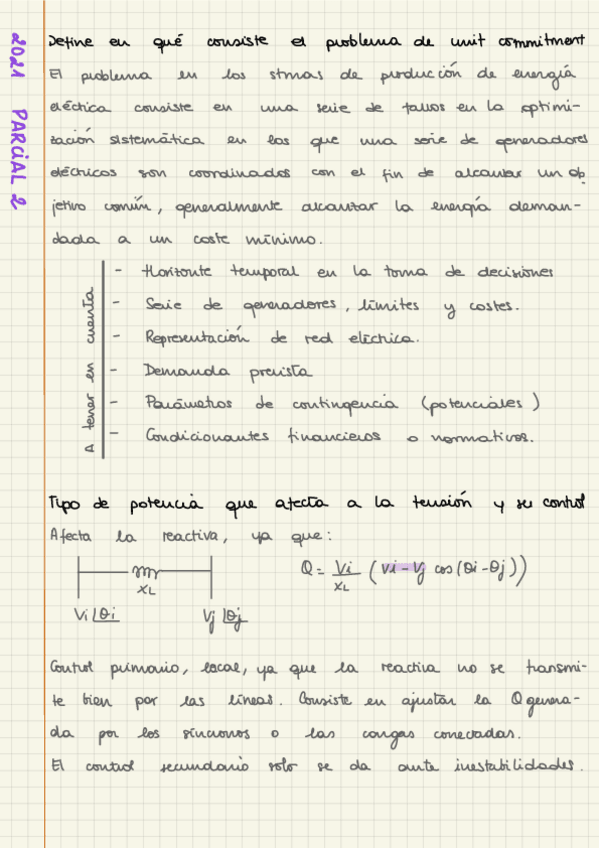 2021 PARCIAL 2
Define en qué consiste el problema de unit commitment
El problema en los stmas de producción de energía
eléctrica consiste en una serie de fallos en la optimi-
zación sistemática en los que una serie de generadores
eléctricos son coordinados con el fin de alcanzar un ob
jetivo común, generalmente alcanzar la energía deman-
dada a un coste mínimo.
A tener en cuenta
- Horizonte temporal en la toma de decisiones
- Serie de generadores, límites y costes.
- Representación de red eléctrica.
- Demanda prevista
- Parámetros de contingencia (potenciales)
- Condicionantes financieros o normativos.
Tipo de potencia que afecta a la tensión y su control
Afecta la reactiva, ya que:
XL
Vi∟θi Vj∟θj
Q = Vi/XL (Vi - Vj cos(θi - θj))
Control primario, local, ya que la reactiva no se transmi-
te bien por las líneas. Consiste en ajustar la Q genera-
da por los síncronos o las cargas conectadas.
El control secundario solo se da ante inestabilidades.